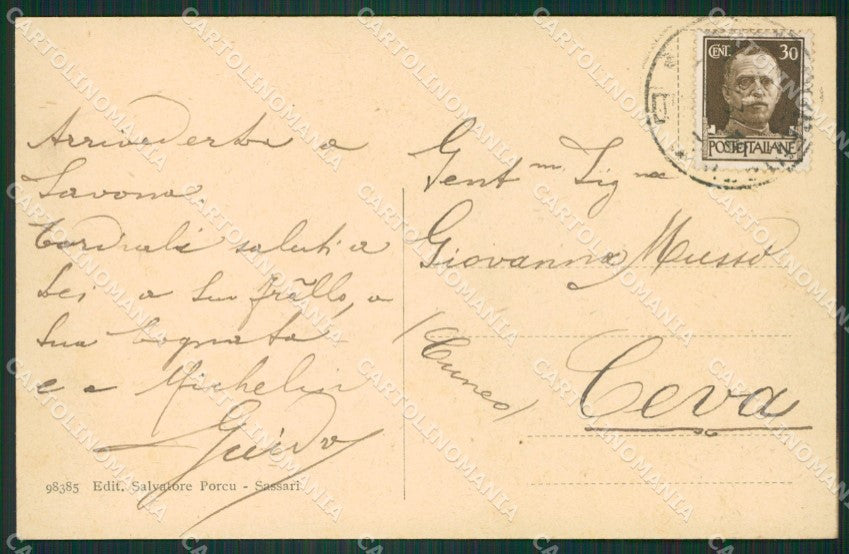 Arrivederti a
Savona.
Cordiali saluti a
Lei a suo frãllo, a
sua Cognata
e a Michelin
Guido
98385 Edit. Salvatore Porcu - Sassari
CENT. 30
POSTE ITALIANE
Gent ma Sig na
Giovanna Musso
(Cuneo)
Ceva
CARTOLINOMANIA